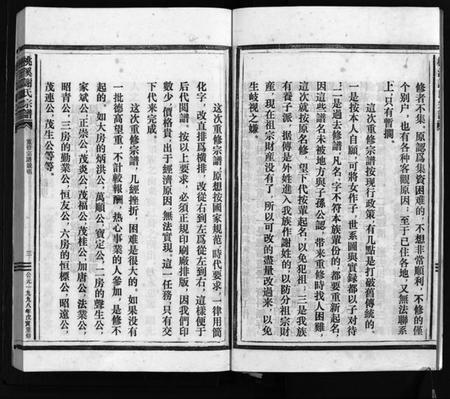 修者不集，原認爲集資困難的，不想非常順利，不修的僅
个别户，也有各种客觀原因；至于已住各地，又無法聯系
上，只有暫擱。
這次重修宗譜按現行政策，有几點是打破舊傳統的，
一是按本人自願，可將女作子，世系圖與實録都以子对待
；二是過去修譜，凡名字不符本族輩份的，都要重新起名，
因這些譜名未被地方與子孫公認，帶來重修時找人困難，
這次就按原名修，望下代按輩起名，以免犯祖；三是我族
有養子派，据傳是外姓進入我族作謝姓的，以防分祖宗財
産，現在祖宗財産没有了，所以可改的盡量改過來，以免
生岐視之嫌。
桃溪謝氏宗譜
三
公元一九九八年戊寅重修
這次重修宗譜，原想按國家規范，時代要求，一律用簡
化字，改直排爲横排，改從右到左爲從左到右，這樣便于
后代閲譜，按以上要求，必須正規印刷廠排版，因我們印
數少，價格貴，出于經濟原因，無法實現，這一任務，只有交
下代来完成。
這次重修宗譜，几經挫折，困難是很大的，如果没有
一批德高望重，不計較報酬，熱心事業的人參加，是修不
起的。如大房的炳洪公，萬順公，寶定公，二房的聲生公，
家斌公，正崇公，茂炎公，茂福公，茂桂公，加唐公，法業公，
昭青公，三房的勤業公，恒友公，六房的恒標公，昭遠公，
茂連公，茂生公等等。